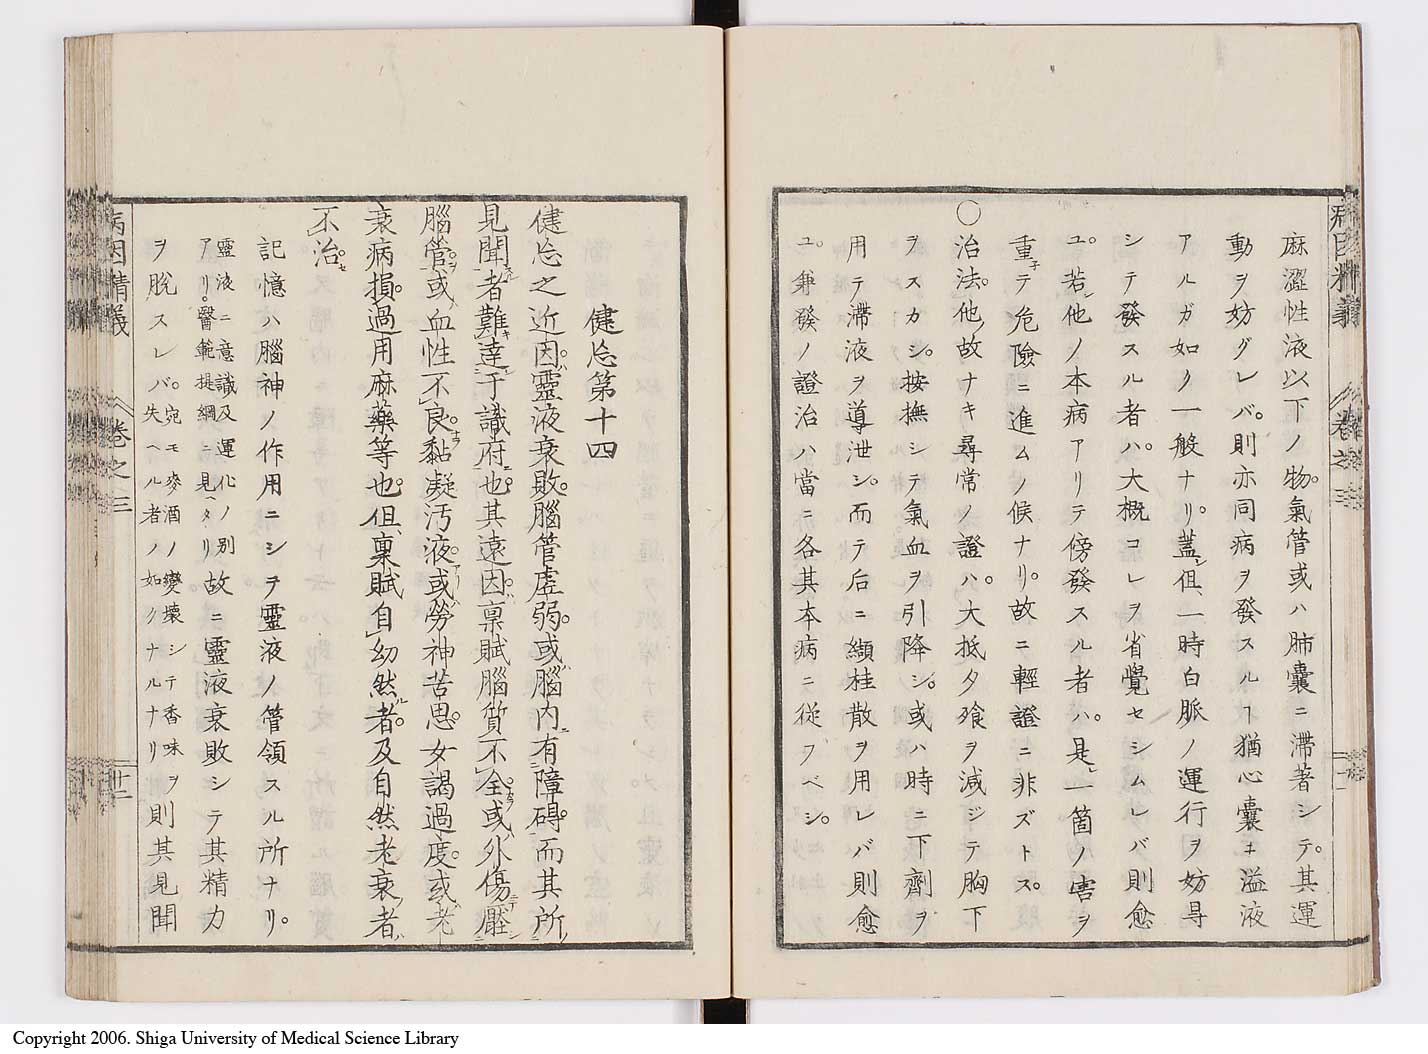 麻澀性液以下ノ物。氣管或ハ肺囊ニ滯著シテ。其運
動ヲ妨グレバ。則亦同病ヲ發スルヿ猶心囊ニ溢液
アルガ如ク一般ナリ。蓋シ但、一時白脈ノ運行ヲ妨㝵
シテ發スル者ハ。大概コレヲ省覺セシムレバ則愈
ユ。若シ他ノ本病アリテ傍發スル者ハ。是レ一箇ノ害ヲ
重子テ危險ニ進ムノ候ナリ。故ニ輕證ニ非ズトス。
〇治法。他ノ故ナキ尋常ノ證ハ。大抵夕飱ヲ減ジテ胸下
ヲスカシ。按撫シテ氣血ヲ引降シ。或ハ時ニ下劑ヲ
用テ滯液ヲ導泄シ。而テ后ニ纈桂散ヲ用レバ則愈
ユ。兼發ノ證治ハ當ニ各其本病ニ從フベシ。
病因精義 卷之三
健忘第十四
健忘之近因。靈液衰敗。腦管虛弱。或腦內有障碍。而其所
見聞者難達于識府也。其遠因。稟賦腦質不全。或外傷壓
腦管。或血性不良。黏凝汚液。或勞神苦思。女謁過度。或老
衰病損。過用麻藥等也。但、稟賦自幼然者。及自然老衰者
不治。
記憶ハ腦神ノ作用ニシテ靈液ノ管領スル所ナリ。
靈液ニ意識及運化ノ別
アリ。醫範提綱ニ見ヘタリ
故ニ靈液衰敗シテ其精力
ヲ脫スレバ。
宛モ麥酒ノ變壞シテ香味ヲ
失ヘル者ノ如クナルナリ
則其見聞
病因精義 卷之三 廿二
Copyright 2006. Shiga University of Medical Science Library